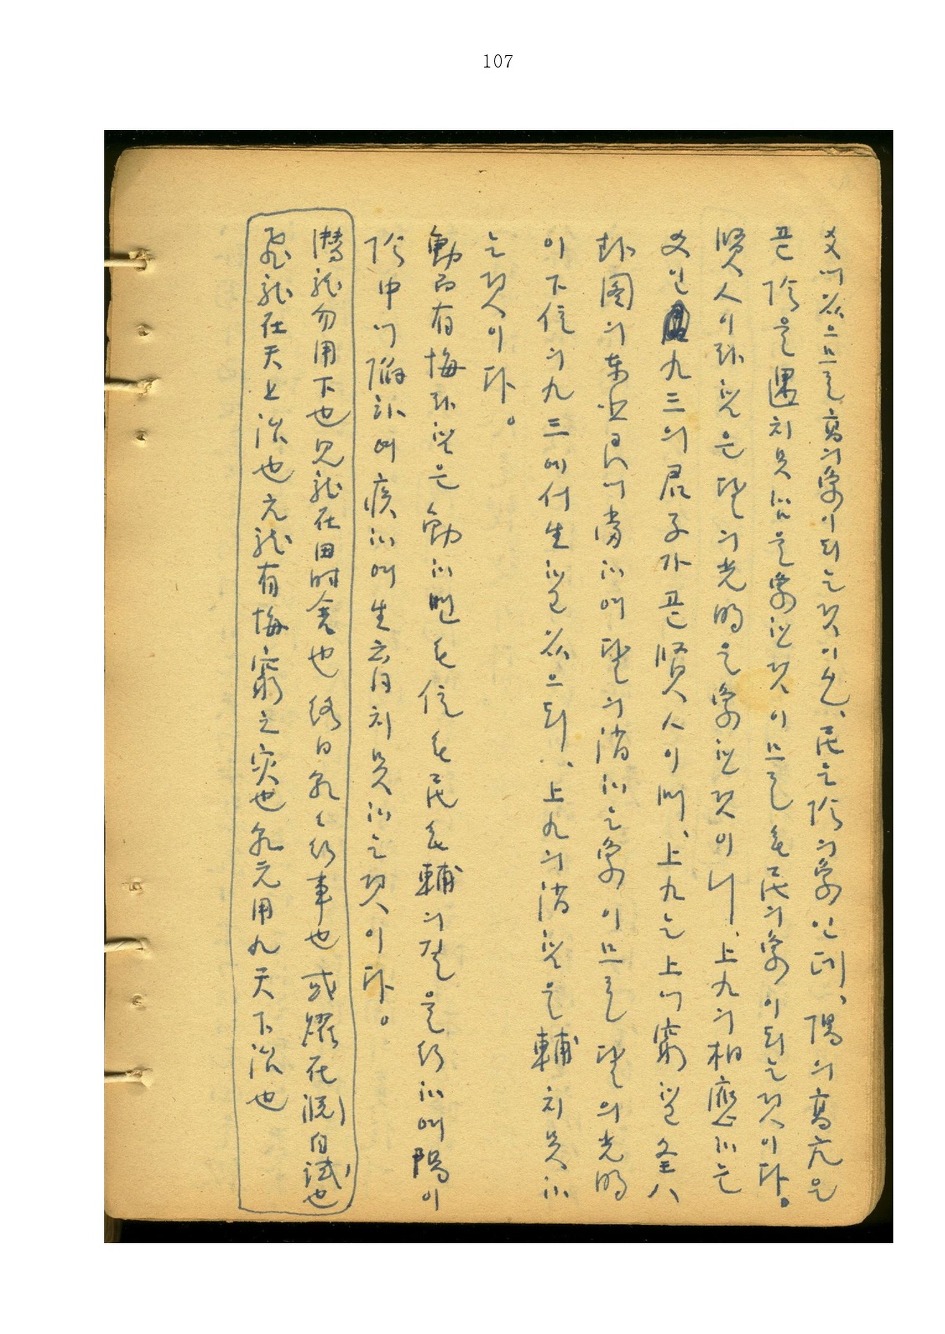 107
爻에 있으므로 高의 象이 되는 것이오, 民은 陰의 象인데, 陽의 高亢은
곧 陰을 遇치 못함은 象한 것이므로 無民의 象이 되는 것이다.
賢人이라 함은 달의 光明을 象한 것이니, 上九의 相應하는
爻인 九三의 君子가 곧 賢人이며, 上九는 上에 窮한
卦圖의 東北艮에 當하여 달의 消하는 象이므로 달의 光明
이 下位의 九三에서 生하고 있으되, 上九의 消함은 輔치 못하
는 것이다.
動而有悔라 함은 動하면 無位 無民 無輔의 길을 行하여 陽이
陰中에 陷하여 疾하여 生育치 못하는 것이다.
潛龍勿用下也見龍在田時舍也終日乾乾行事也或躍在淵自試也
飛龍在天上治也亢龍有悔窮之災也乾元用九天下治也